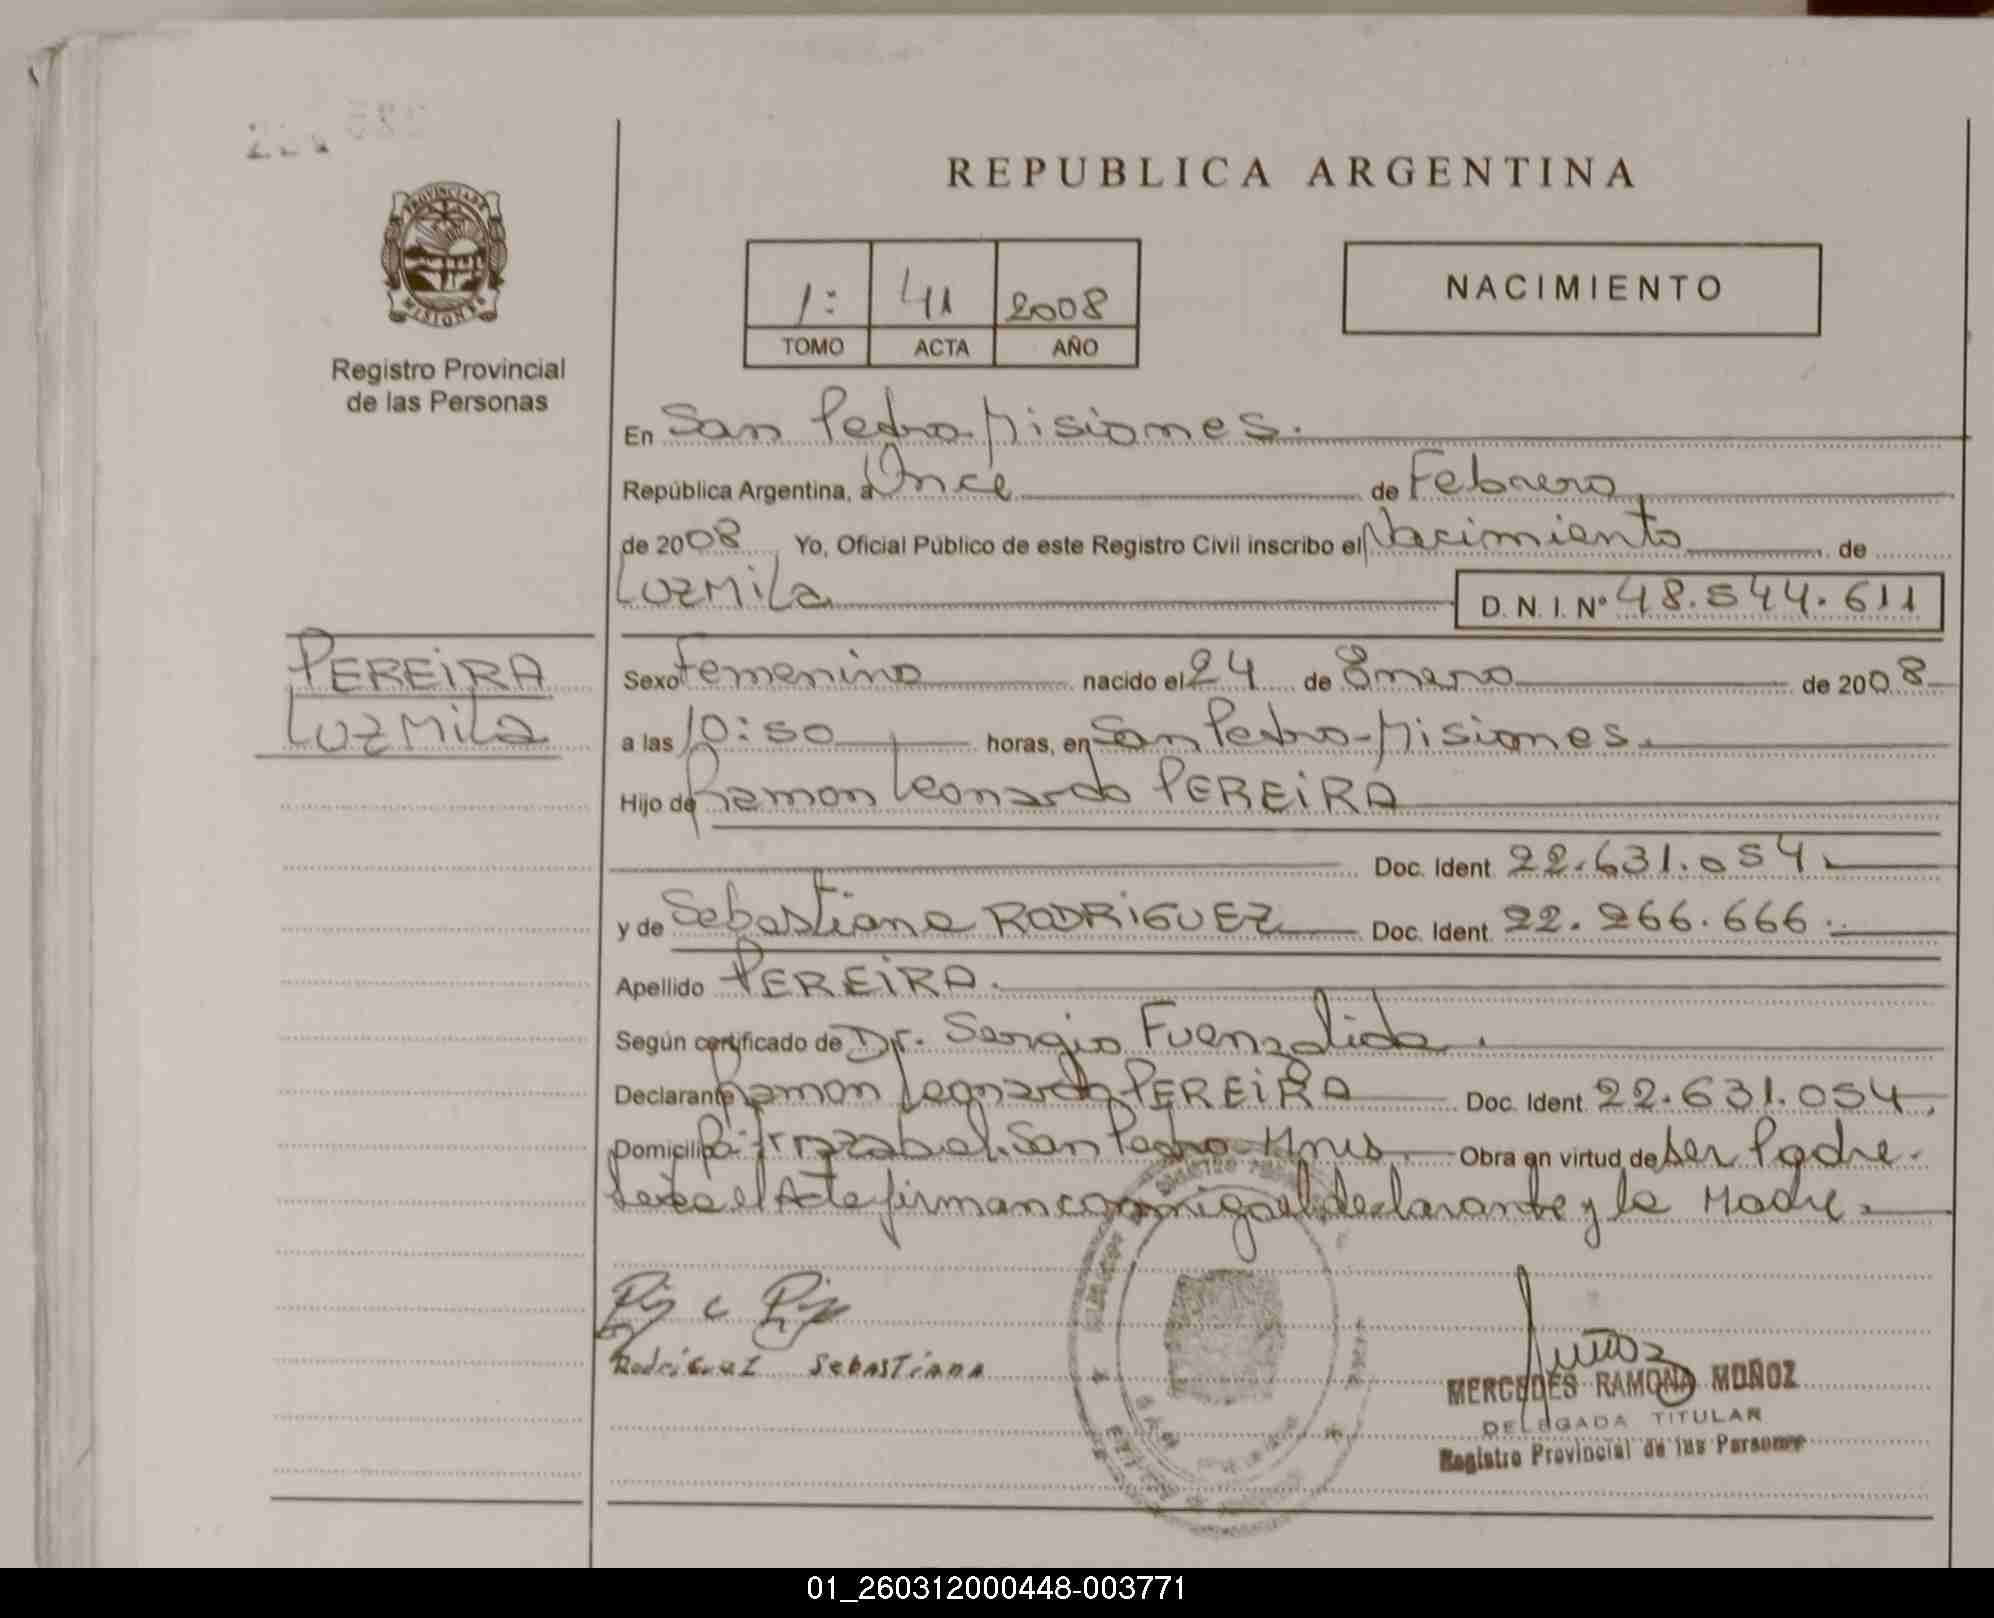 PROVINCIA DE
MISIONES
Registro Provincial
de las Personas
PEREIRA
LUZMILA
REPUBLICA ARGENTINA
1: 41 2008
TOMO ACTA AÑO
NACIMIENTO
En San Pedro-Misiones.
República Argentina, a Once de Febrero
de 2008 Yo, Oficial Público de este Registro Civil inscribo el Nacimiento de
LUZMILA D. N. I. Nº 48.544.611
Sexo Femenino nacido el 24 de Enero de 2008
a las 10:50 horas, en San Pedro-Misiones.
Hijo de Ramon Leonardo PEREIRA
Doc. Ident. 22.631.054.
y de Sebastiana RODRIGUEZ Doc. Ident. 22.266.666.
Apellido PEREIRA.
Según certificado de Dr. Sergio Fuenzalida.
Declarante Ramon Leonardo PEREIRA Doc. Ident. 22.631.054.
Domicilio Bº Irrazabal. San Pedro-Mnes. Obra en virtud de ser Padre.
Leida el Acta firman conmigo el declarante y la Madre.
Rodriguez SEBASTIANA
Muñoz
MERCEDES RAMONA MUÑOZ
DELEGADA TITULAR
Registro Provincial de las Personas
01_260312000448-003771